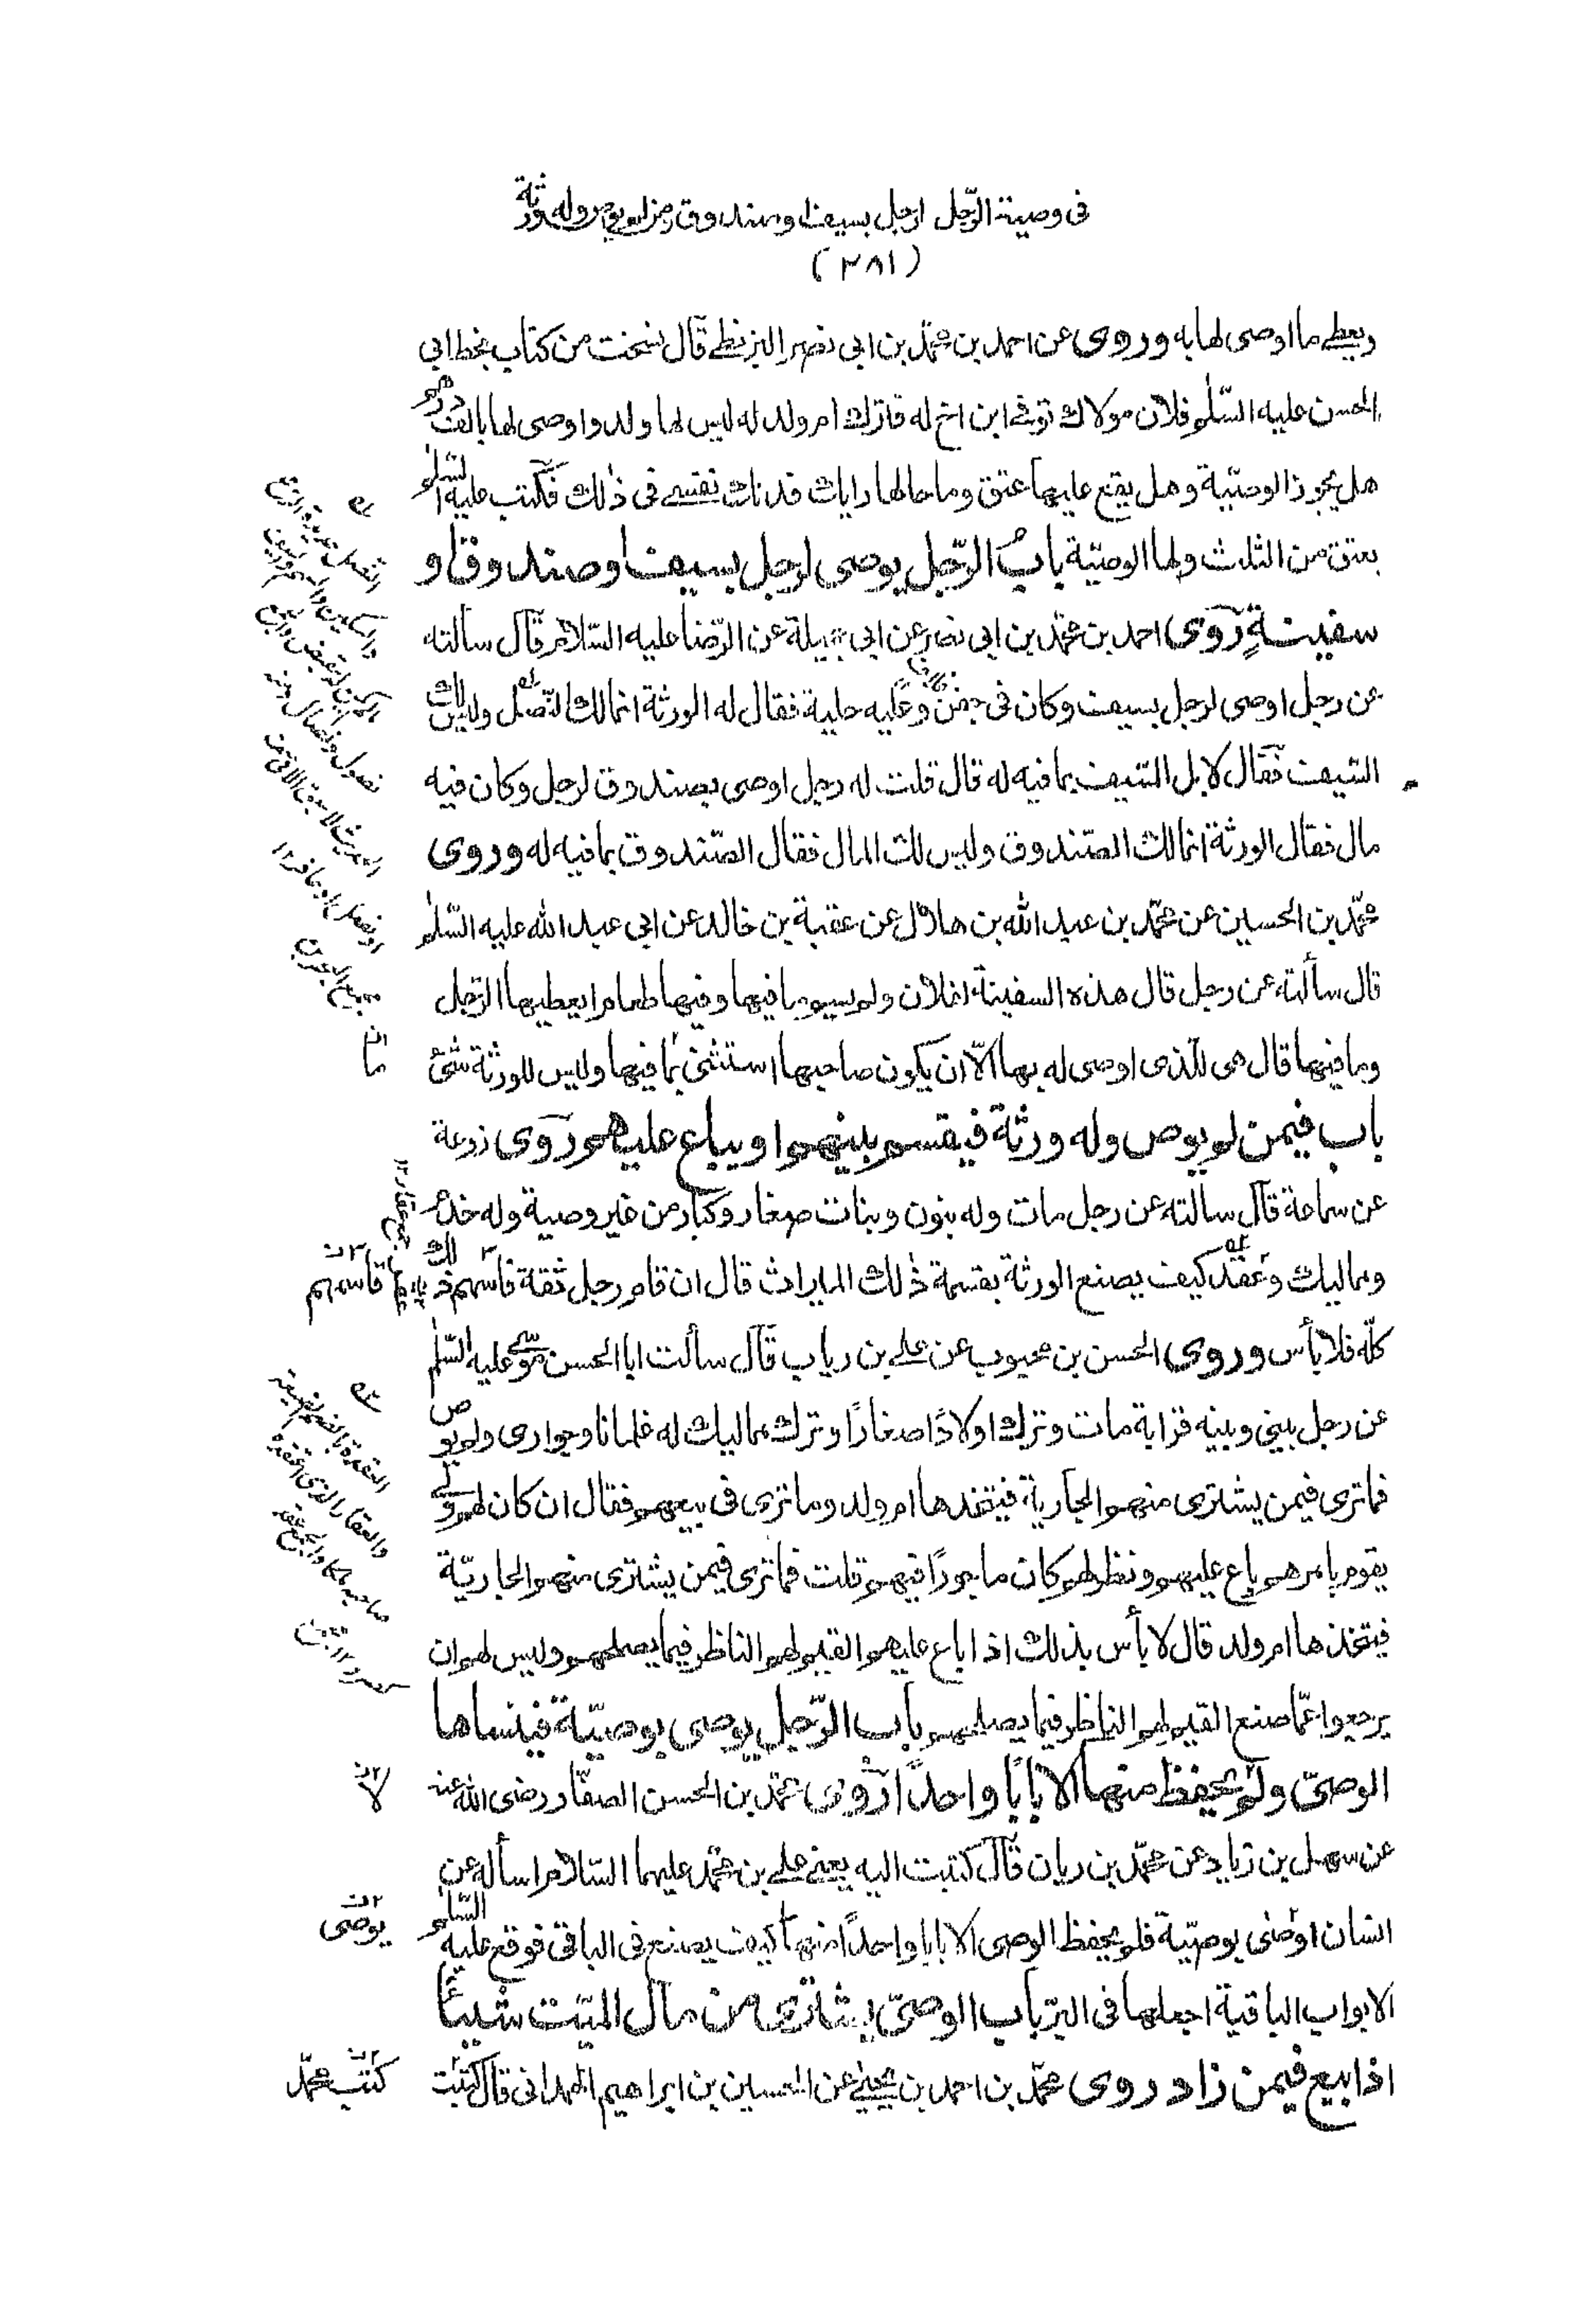 فى وصية الرّجل لرجل بسيف او صندوق ومن لم يوص وله ورثة
(٢٨١)
ويعطى ما اوصى لها به وروى عن احمد بن محمّد بن ابى نصر البزنطى قال نسخت من كتاب بخط ابى
الحسن عليه السّلم فلان مولاك توفى ابن اخ له فترك ام ولد له ليس لها ولد واوصى لها بالف درهم
هل يجوز الوصيّة وهل يقع عليها عتق وما حالها رايك فدتك نفسى فى ذلك فكتب عليه السّلم
يعتق من الثلث ولها الوصيّة باب الرّجل يوصى لرجل بسيف او صندوق او
سفينةٍ روى احمد بن محمّد بن ابى نصر عن ابى جميلة عن الرّضا عليه السّلام قال سالته
عن رجل اوصى لرجل بسيف وكان فى جفن وعليه حلية فقال له الورثة انما لك النّصل وليس لك
السّيف فقال لا بل السّيف بما فيه له قال قلت له رجل اوصى بصندوق لرجل وكان فيه
مال فقال الورثة انما لك الصّندوق وليس لك المال فقال الصّندوق بما فيه له وروى
محمّد بن الحسين عن محمّد بن عبد الله بن هلال عن عقبة بن خالد عن ابى عبد الله عليه السّلم
قال سألته عن رجل قال هذه السفينة لفلان ولم يسم ما فيها وفيها طعام ايعطيها الرّجل
وما فيها قال هى للّذى اوصى له بها الّا ان يكون صاحبها استثنى بما فيها وليس للورثة شئ
باب فيمن لم يوص وله ورثة فيقسم بينهم او يباع عليهم روى زرعة
عن سماعة قال سالته عن رجل مات وله بنون وبنات صغار وكبار من غير وصية وله خدم
ومماليك وعقد كيف يصنع الورثة بقسمة ذلك الميراث قال ان قام رجل ثقة قاسمهم ذلك
قاسمهم
كلّه فلا بأس وروى الحسن بن محبوب عن على بن رياب قال سألت ابا الحسن موسى عليه السّلم
عن رجل بينى وبينه قرابة مات وترك اولادًا صغارًا وترك مماليك له غلمانا وجوارى ولم يوص
فما ترى فيمن يشترى منهم الجارية فيتخذها ام ولد وما ترى فى بيعهم فقال ان كان لهم ولى
يقوم بامرهم باع عليهم ونظر لهم كان ماجورًا فيهم قلت فما ترى فيمن يشترى منهم الجاريّة
فيتخذها ام ولد قال لا بأس بذلك اذا باع عليهم القيم لهم الناظر فيما يصلحهم وليس لهم ان
يرجعوا عمّا صنع القيم لهم الناظر فيما يصلحهم باب الرّجل يوصى بوصيّة فينساها
الوصىّ ولم يحفظ منها الا بابًا واحدًا روى محمّد بن الحسن الصفّار رضى الله عنه
لا
عن سهل بن زياد عن محمّد بن ريان قال كتبت اليه يعنى على بن محمّد عليهما السّلام اساله عن
انسان اوصى بوصيّة فلم يحفظ الوصى الا بابا واحدًا منها كيف يصنع فى الباقى فوقع عليه السّلم
يوصى
الابواب الباقية اجعلها فى البرّ باب الوصىّ يشترى من مال الميّت شيئًا
اذا بيع فيمن زاد روى محمّد بن احمد بن يحيى عن الحسين بن ابراهيم الهمدانى قال كتبت
كتب محمّد